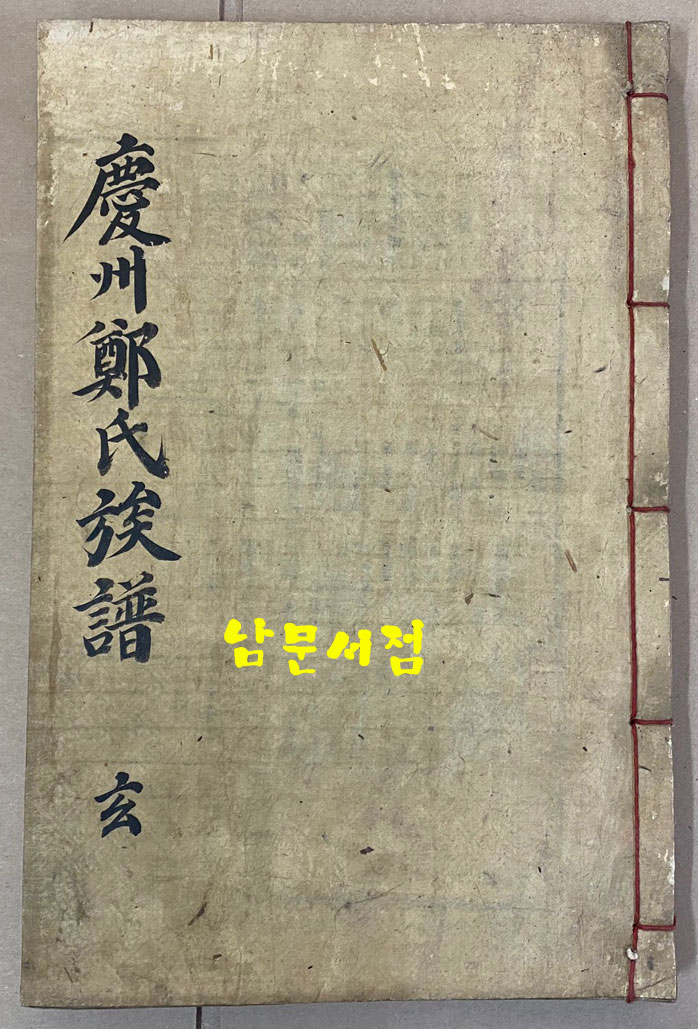 慶州鄭氏族譜
玄
남문서점